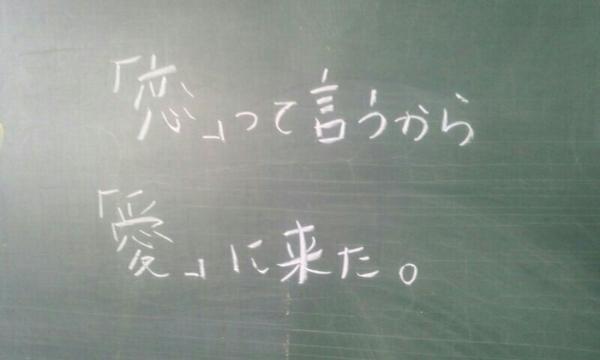 「恋」って言うから
「愛」に来た。